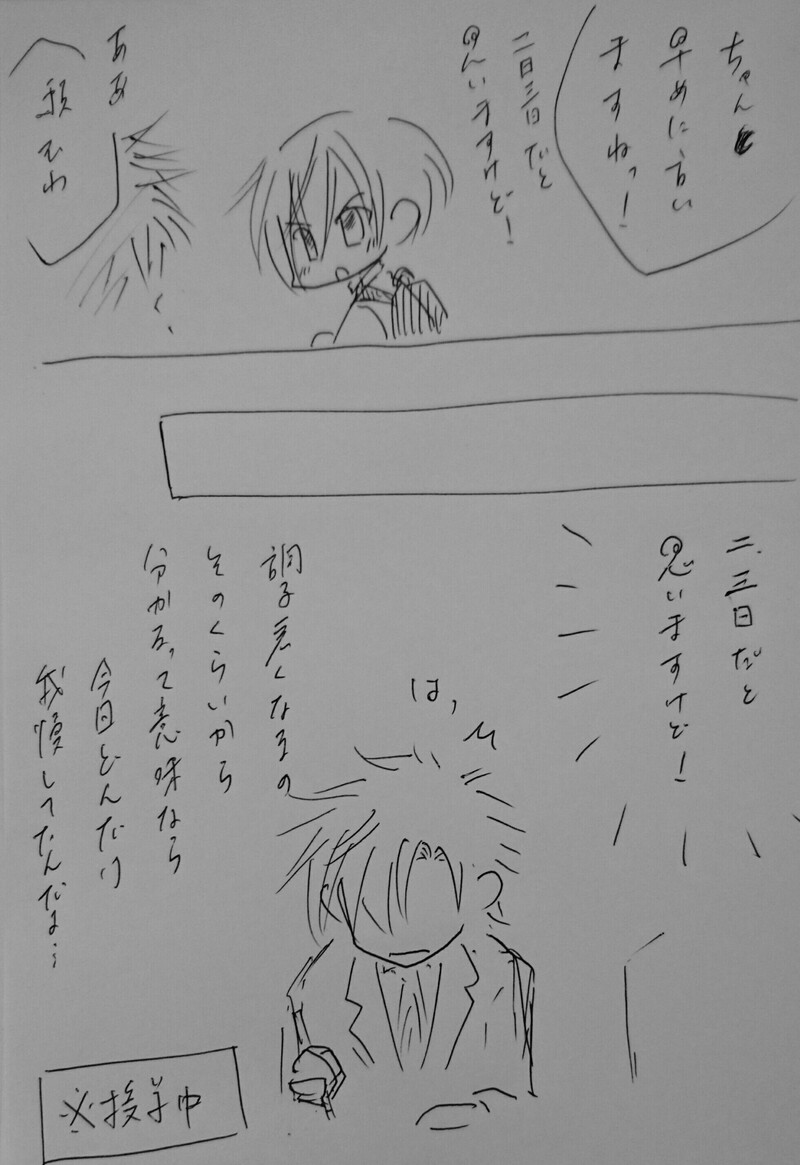 ちゃんと
早めに言い
ますねっ!
二日三日だと
思いますけど!
ああ
頼むわ
二、三日だと
思いますけど!
は、
調子悪くなるの
そのくらいから
分かるって意味なら
今日どんだけ
我慢してたんだよ…
※授業中